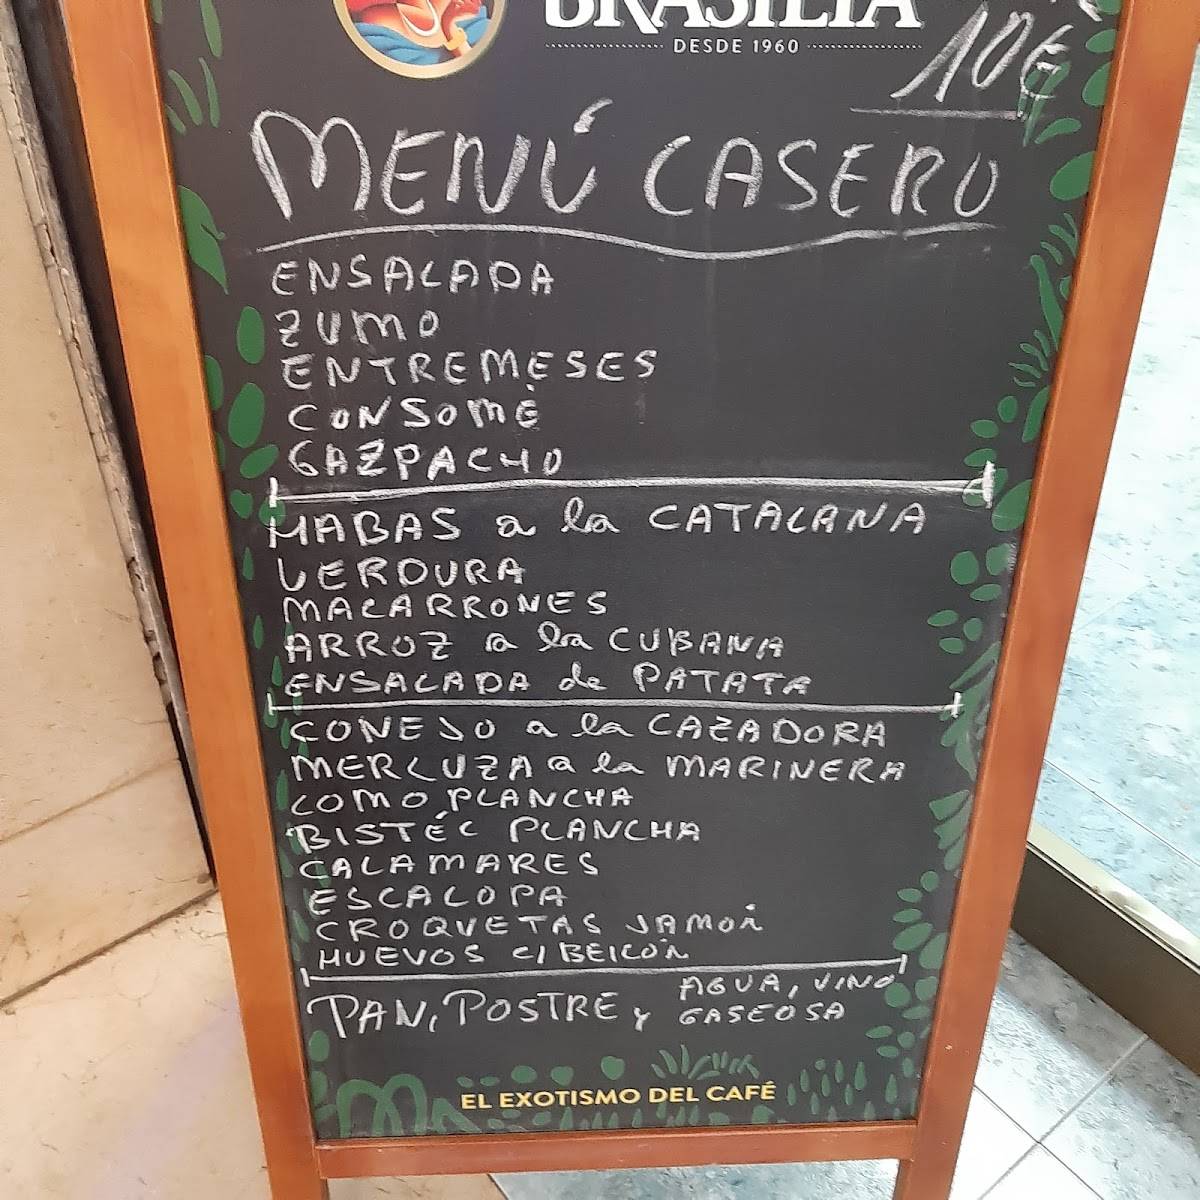 BRASILIA
DESDE 1960
10€
MENÚ CASERO
ENSALADA
ZUMO
ENTREMESES
CONSOMÉ
GAZPACHO
HABAS a la CATALANA
VERDURA
MACARRONES
ARROZ a la CUBANA
ENSALADA de PATATA
CONEJO a la CAZADORA
MERLUZA a la MARINERA
LOMO PLANCHA
BISTÉC PLANCHA
CALAMARES
ESCALOPA
CROQUETAS JAMÓN
HUEVOS C/ BEICÓN
PAN, POSTRE y AGUA, VINO
GASEOSA
EL EXOTISMO DEL CAFÉ